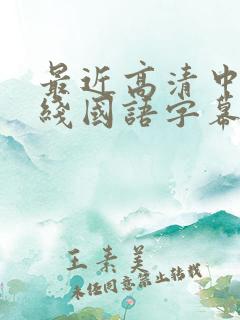 最近高清中
綫國語字幕
王素美
未经同意禁止转载